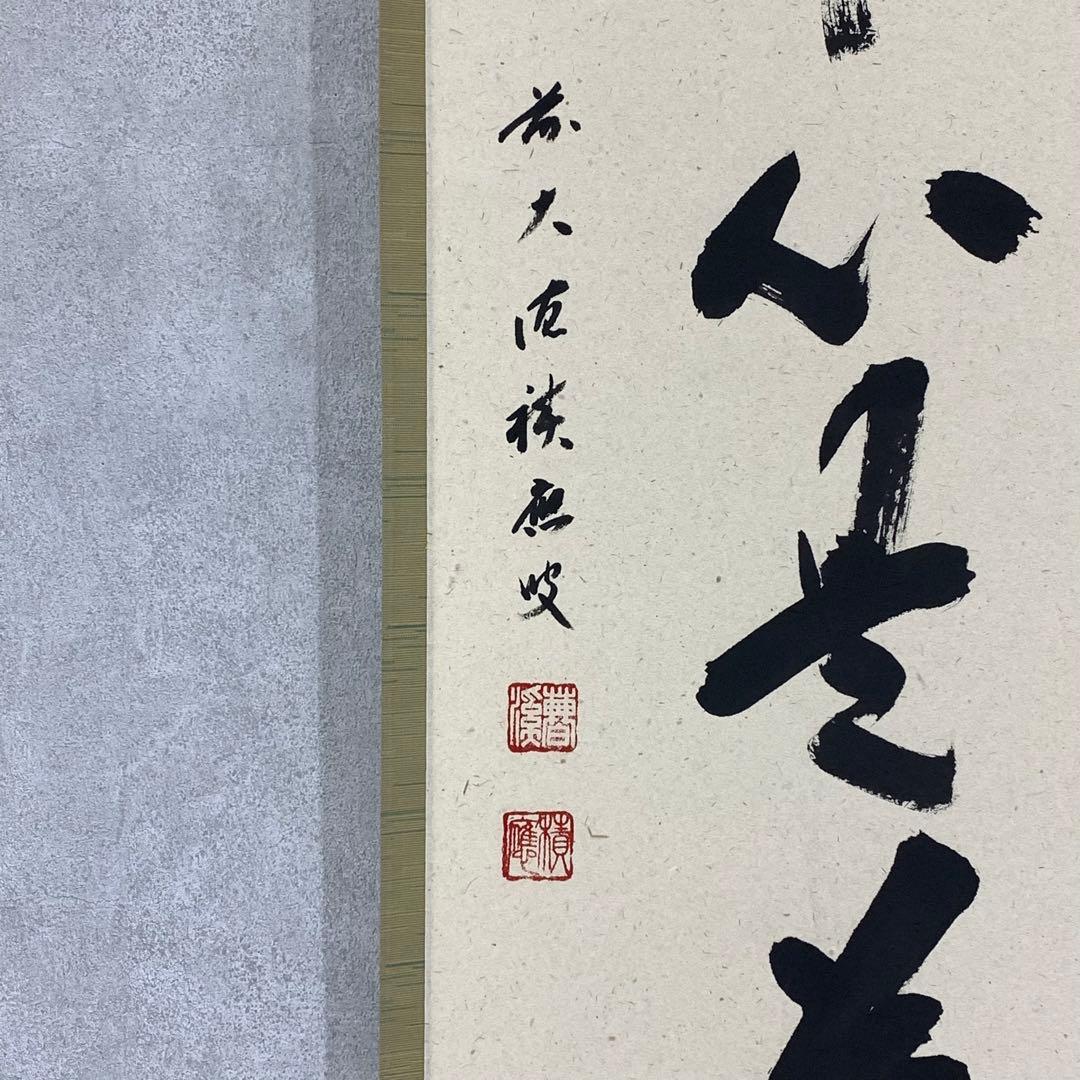 心是
前大徳積應叟
積應